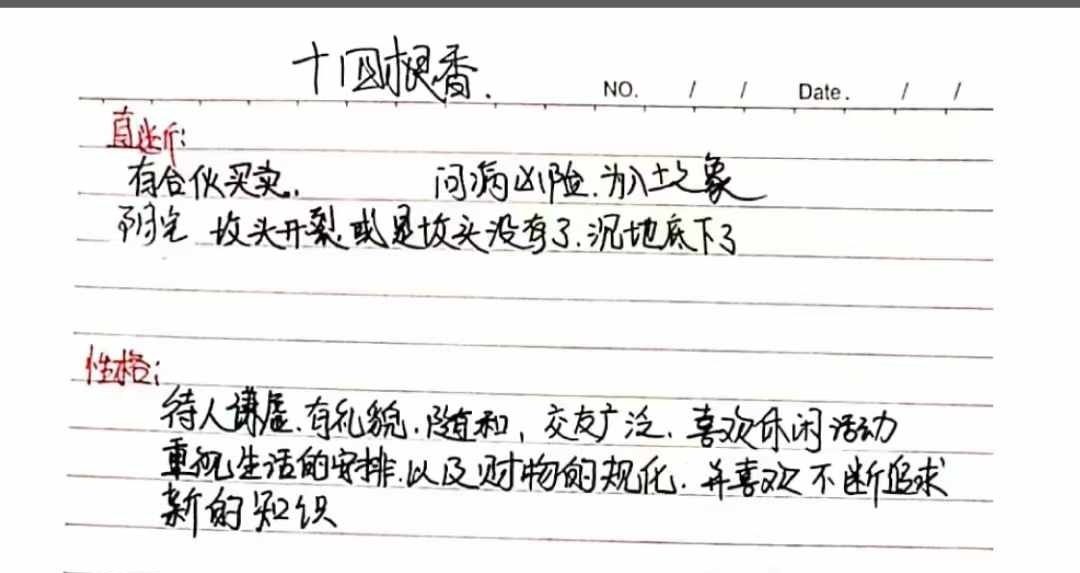 十四根香.
NO. / / Date. / /
直断:
有合伙买卖. 问病凶险.为入土之象
阴宅 坟头开裂.或是坟头没有了.沉地底下了
性格:
待人谦虚.有礼貌.随和, 交友广泛.喜欢休闲活动
重视生活的安排.以及财物的规化.并喜欢不断追求
新的知识